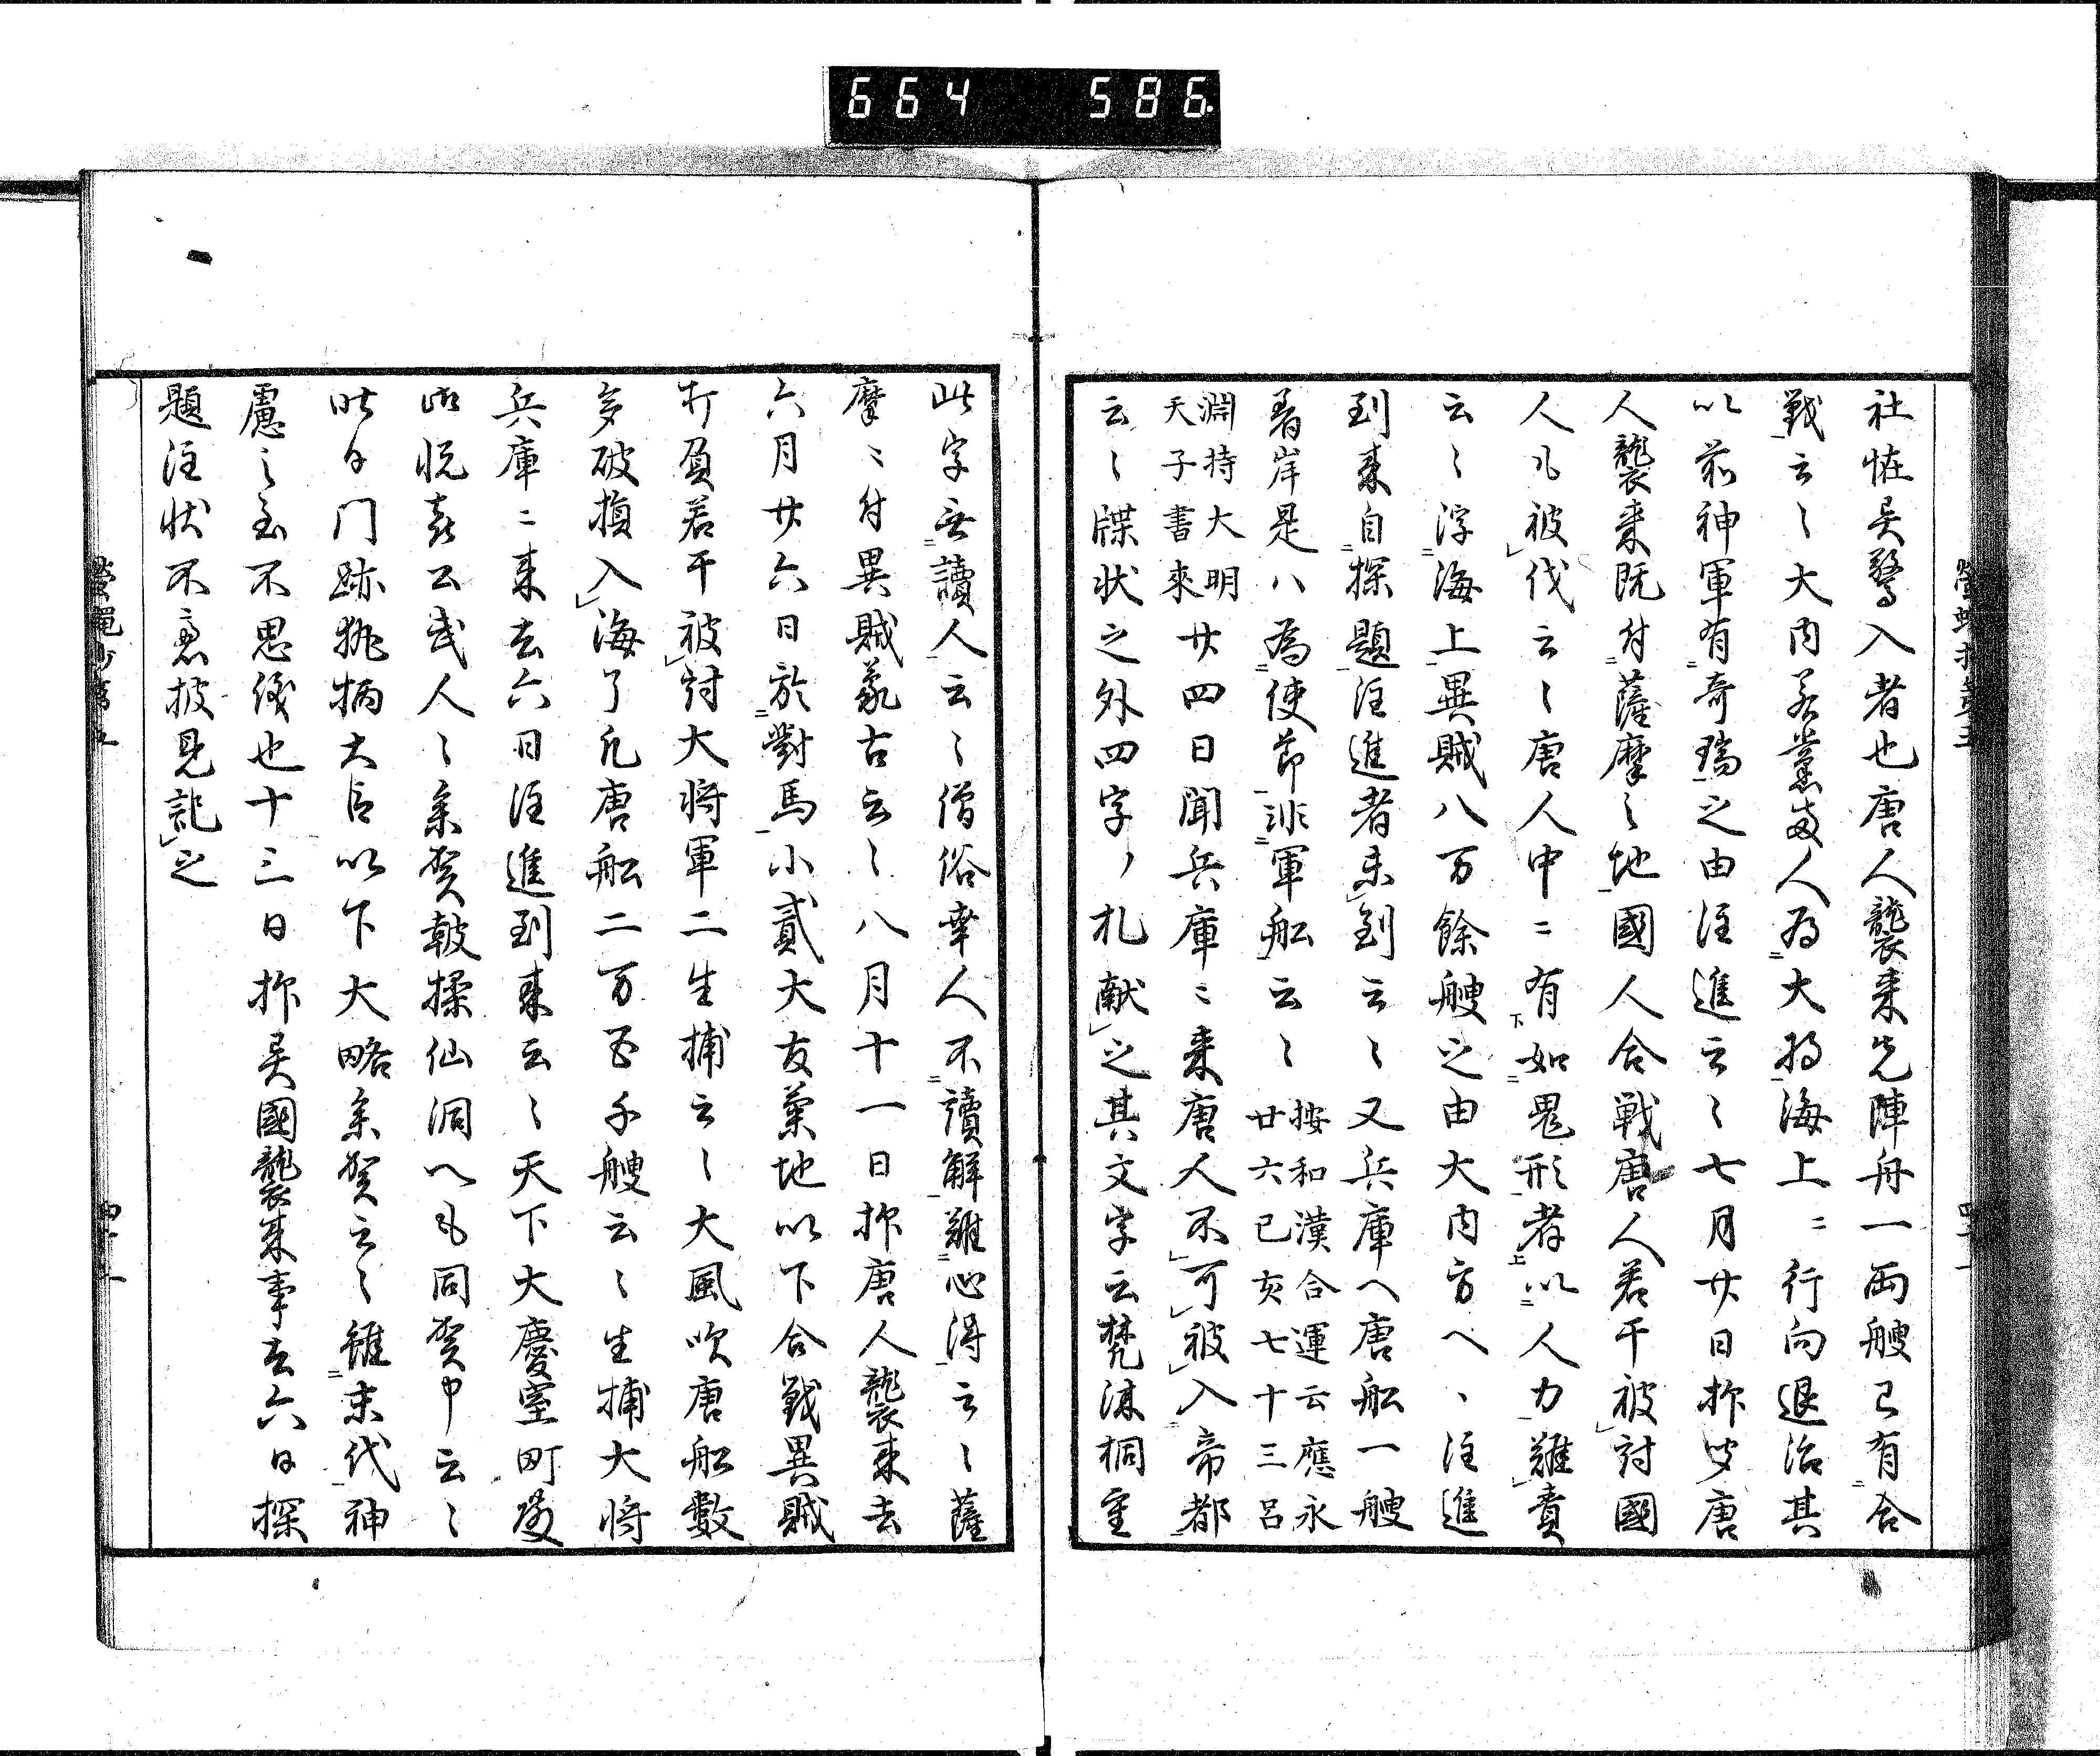 664 586
社恠异驚入者也唐人襲来先陣舟一両艘已有合
戦云〻大内若黨両人為大将海上ニ行向退治其
以前神軍有奇瑞之由注進云〻七月廿日抑又唐
人襲来既付薩摩之地國人合戦唐人若干被討國
人も被伐云〻唐人中ニ有如鬼形者以人力難責
云〻浮海上異賊八万餘艘之由大内方へ、注進
到来自探題注進者未到云〻又兵庫へ唐舩一艘
着岸是ハ為使節非軍舩云〻
按和漢合運云應永
廿六己亥七十三呂
淵持大明
天子書來
廿四日聞兵庫ニ来唐人不可被入帝都
云〻牒状之外四字ノ札献之其文字云梵沫桐重
此字無讀人云〻僧俗幸人不讀解難心得云〻薩
摩ニ付異賊蒙古云〻八月十一日抑唐人襲来去
六月廿六日於對馬小貳大友菊地以下合戦異賊
打負若干被討大将軍二生捕云〻大風吹唐舩數
多破損入海了凡唐舩二万五千艘云〻生捕大将
兵庫ニ来去六日注進到来云〻天下大慶室町殿
御悦喜公武人〻参賀鼓操仙洞へも同賀申云〻
昨日門跡執柄大臣以下大略参賀云〻雖末代神
慮之至不思儀也十三日抑异國襲来事去六日探
題注状不慮披見記之